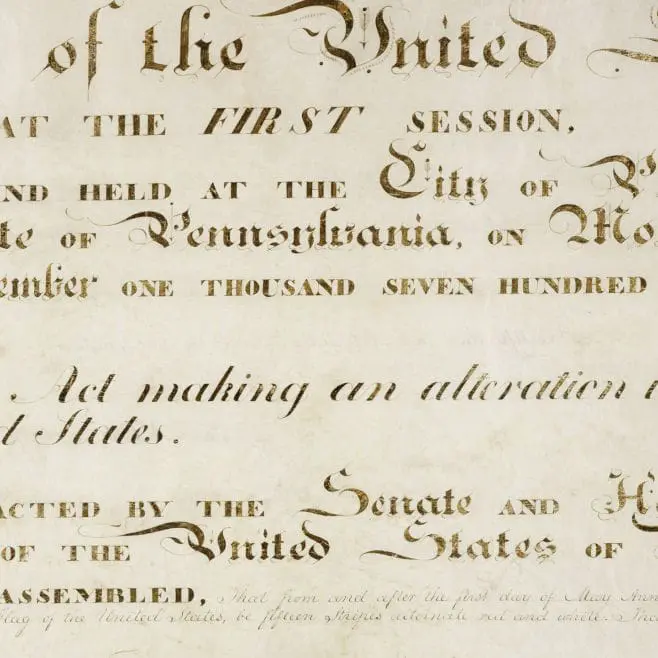 of the United
AT THE FIRST SESSION,
ND HELD AT THE City OF
te OF Pennsylvania, ON Mo
ember ONE THOUSAND SEVEN HUNDRED
Act making an alteration
d States.
ACTED BY THE Senate AND H
OF THE United States OF
ASSEMBLED, That from and after the first day of May Ann
flag of the United States, be fifteen Stripes alternate red and white. Tha